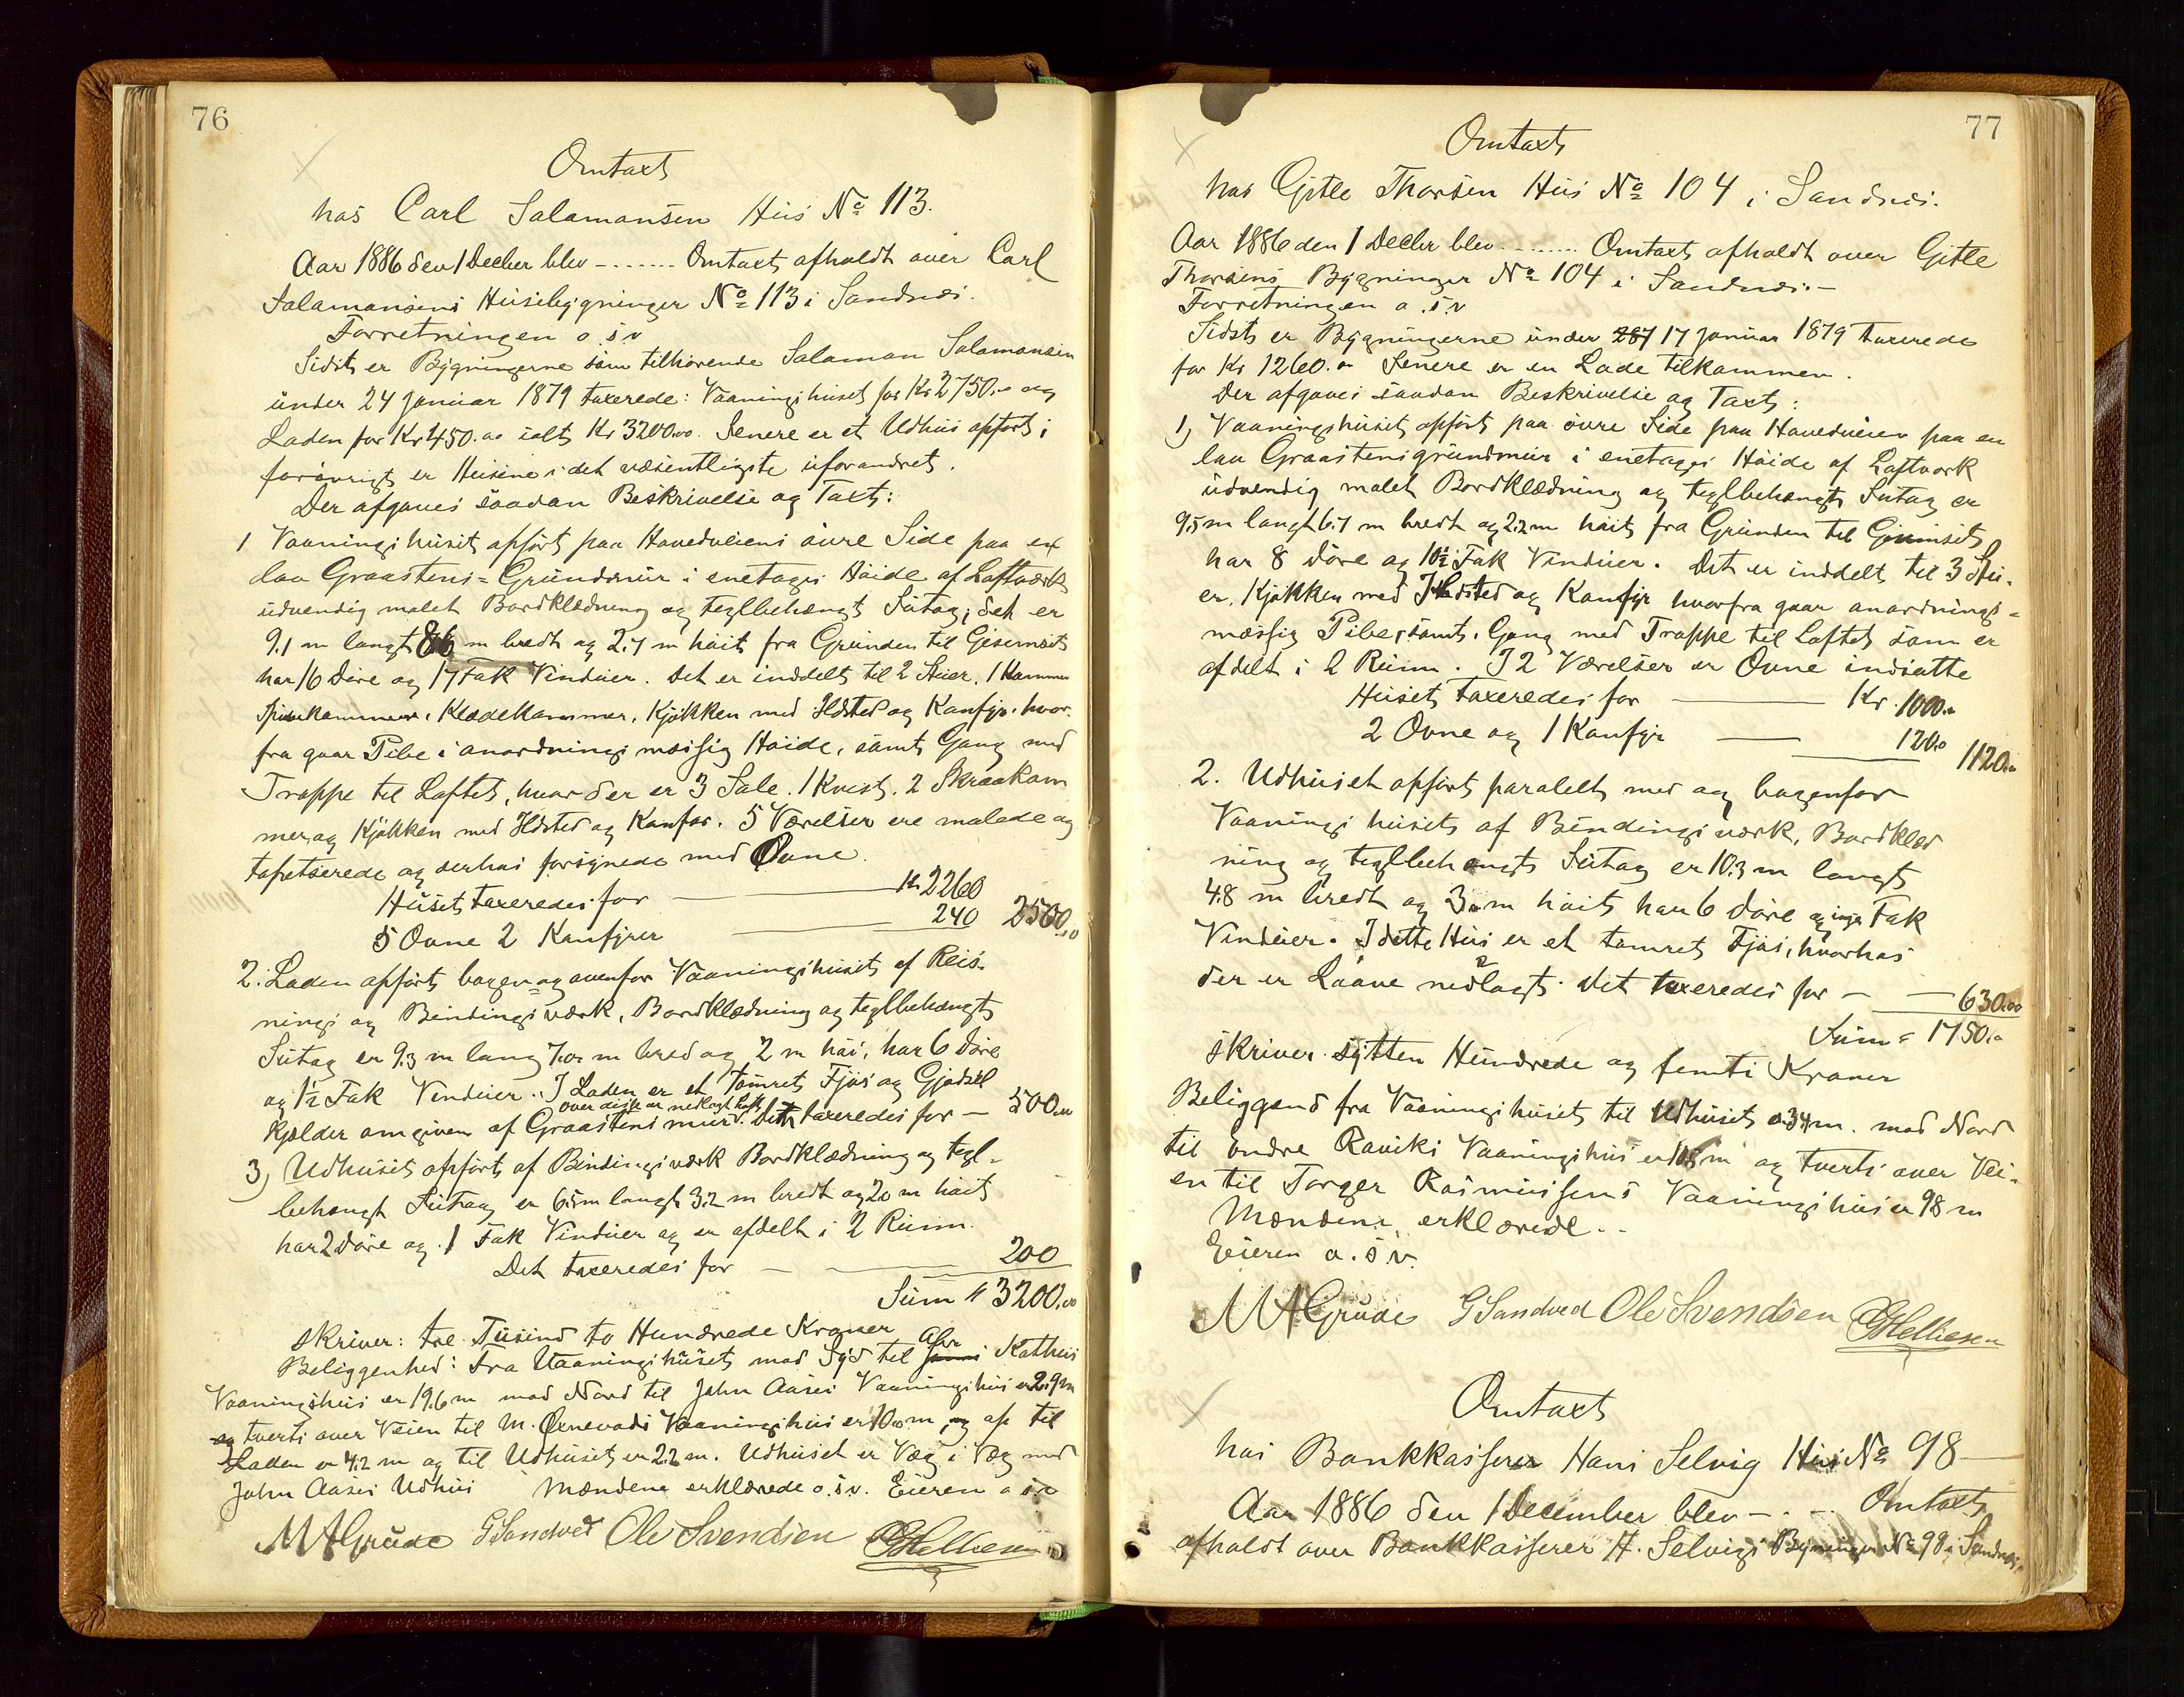 76
Omtaxt
hos Carl Salamonsen Hus No 113.
Aar 1886 den 1 Decber blev - ....... Omtaxt afholdt over Carl
Salamonsens Husebygninger No 113 i Sandnæs.
Forretningen o.s.v
Sidst er Bygningerne som tilhørende Salamon Salamonsen
under 24 Januar 1879 taxerede: Vaaningshuset for Kr 2750.00 og
Laden for Kr 450.00 ialt Kr 3200.00. Senere er et Udhus opført;
forøvrigt er Husene i det væsentligste uforandret.
Der afgaves saadan Beskrivelse og Taxt:
1 Vaaningshuset opført paa Hovedveiens øvre Side paa en
lav Graastens=Grundmur i enetages Høide af Laftværk
udvendig malet Bordklædning og teglbehængt Sutag; det er
9.1 m langt 86 m bredt og 2.7 m høit fra Grunden til Gesemset
har 16 Døre og 17 Fak Vinduer. Det er inddelt til 2 Stuer, 1 Kammer
Spisekammer, Klædekammer, Kjøkken med Ildsted og Komfyr, hvor-
fra gaar Pibe i anordningsmæssig Høide, samt Gang med
Trappe til Loftet, hvor der er 3 Sale, 1 Kvist, 2 Skraakam
mer og Kjøkken med Ildsted og Komfør. 5 Værelser ere malede og
tapetserede og derhos forsynede med Ovne.
Huset taxeredes for — Kr 2260
5 Ovne 2 Komfyrer — 240 2500.00
2. Laden opført bagen=og ovenfor Vaaningshuset af Reis-
nings og Bindingsværk, Bordklædning og teglbehængt
Sutag er 9.3 m lang 7.0 m bred og 2 m høi, har 6 Døre
og 1½ Fak Vinduer. I Laden er et tømret Fjøs og Gjødsel
over disse er nedlagt Loft
kjelder omgiven af Graastensmur. Det taxeredes for — 500.00
3) Udhuset opført af Bindingsværk Bordklædning og tegl-
behængt Sutag er 6.5 m langt 3.2 m bredt og 2.0 m høit
har 2 Døre og 1 Fak Vinduer og er afdelt i 2 Rum.
Det taxeredes for — 200
Sum " 3200.00
skriver: tre Tusind to Hundrede Kroner
Beliggenhed: Fra Vaaningshuset mod Syd til Kathus
Vaaningshus er 19.6 m mod Nord til John Aases Vaaningshus er 2.9 m
og tverts over Veien til M. Ørnevads Vaaningshus er 10.0 m, og op til
Laden er 4.2 m og til Udhuset er 2.2 m. Udhuset er Væg i Væg med
John Aases Udhus Mændene erklærede o.s.v. Eieren o s v
M A Grude G Sandved Ole Svendsen

77
Omtaxt
hos Gitle Thorsen Hus No 104 i Sandnæs.
Aar 1886 den 1 Decbr blev ........ Omtaxt afholdt over Gitle
Thorsens Bygninger No 104 i Sandnæs. -
Forretningen o.s.v
Sidst er Bygningerne under 287 17 Januar 1879 taxerede
for Kr 1260.00 Senere er en Lade tilkommen.
Der afgaves saadan Beskrivelse og Taxt:
1) Vaaningshuset opført paa øvre Side paa Hovedveien paa en
lav Graastensgrundmur i enetages Høide af Laftværk
udvendig malet Bordklædning og teglbehængt Sutag er
9.5 m langt 6.7 m bredt og 2.2 m høit fra Grunden til Gesimset
har 8 Døre og 10½ Fak Vinduer. Det er inddelt til 3 Stu-
er, Kjøkken med Ildsted og Komfyr hvorfra gaar anordnings=
mæssig Pibe, samt Gang med Trappe til Loftet som er
afdelt i 2 Rum. I 2 Værelser er Ovne indsatte
Huset taxeredes for — Kr. 1000.00
2 Ovne og 1 Komfyr — 120.0 1120.00
2. Udhuset opført paralelt med og bagenfor
Vaanings huset af Bindingsværk, Bordklæd
ning og teglbehængt Sutag er 10.3 m langt
4.8 m bredt og 3.0 m høit har 6 Døre og Fak
Vinduer. I dette Hus er et tømret Fjøs, hvorhos
der er Laave nedlagt. Det taxeredes for — — 630.00
Sum = 1750.00
skriver sytten Hundrede og femti Kroner
Beliggend fra Vaaningshuset til Udhuset er 3.4 m. mod Nord
til Endre Ravikis Vaaningshus er m og tverts over Vei-
en til Torger Rasmussens Vaaningshus er 9.8 m
Mændene erklærede. -
Eieren o.s.v.
M A Grude G Sandved Ole Svendsen
Omtaxt
hos Bankkasserer Hans Selvig Hus No 98
Aar 1886 den 1 December blev - . . . Omtaxt
afholdt over Bankkasserer H. Selvigs Bygninger No 98 i Sandnæs.